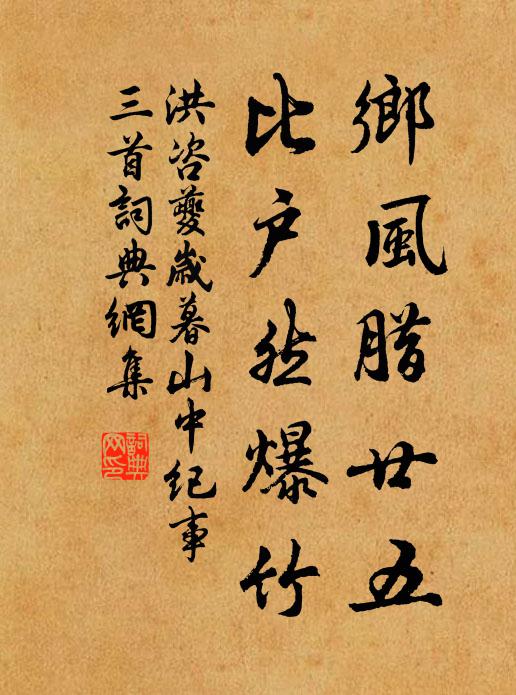 鄉風腊廿五
比戶然爆竹
洪咨夔歲暮山中纪事
三首詞典網集
詞典网印